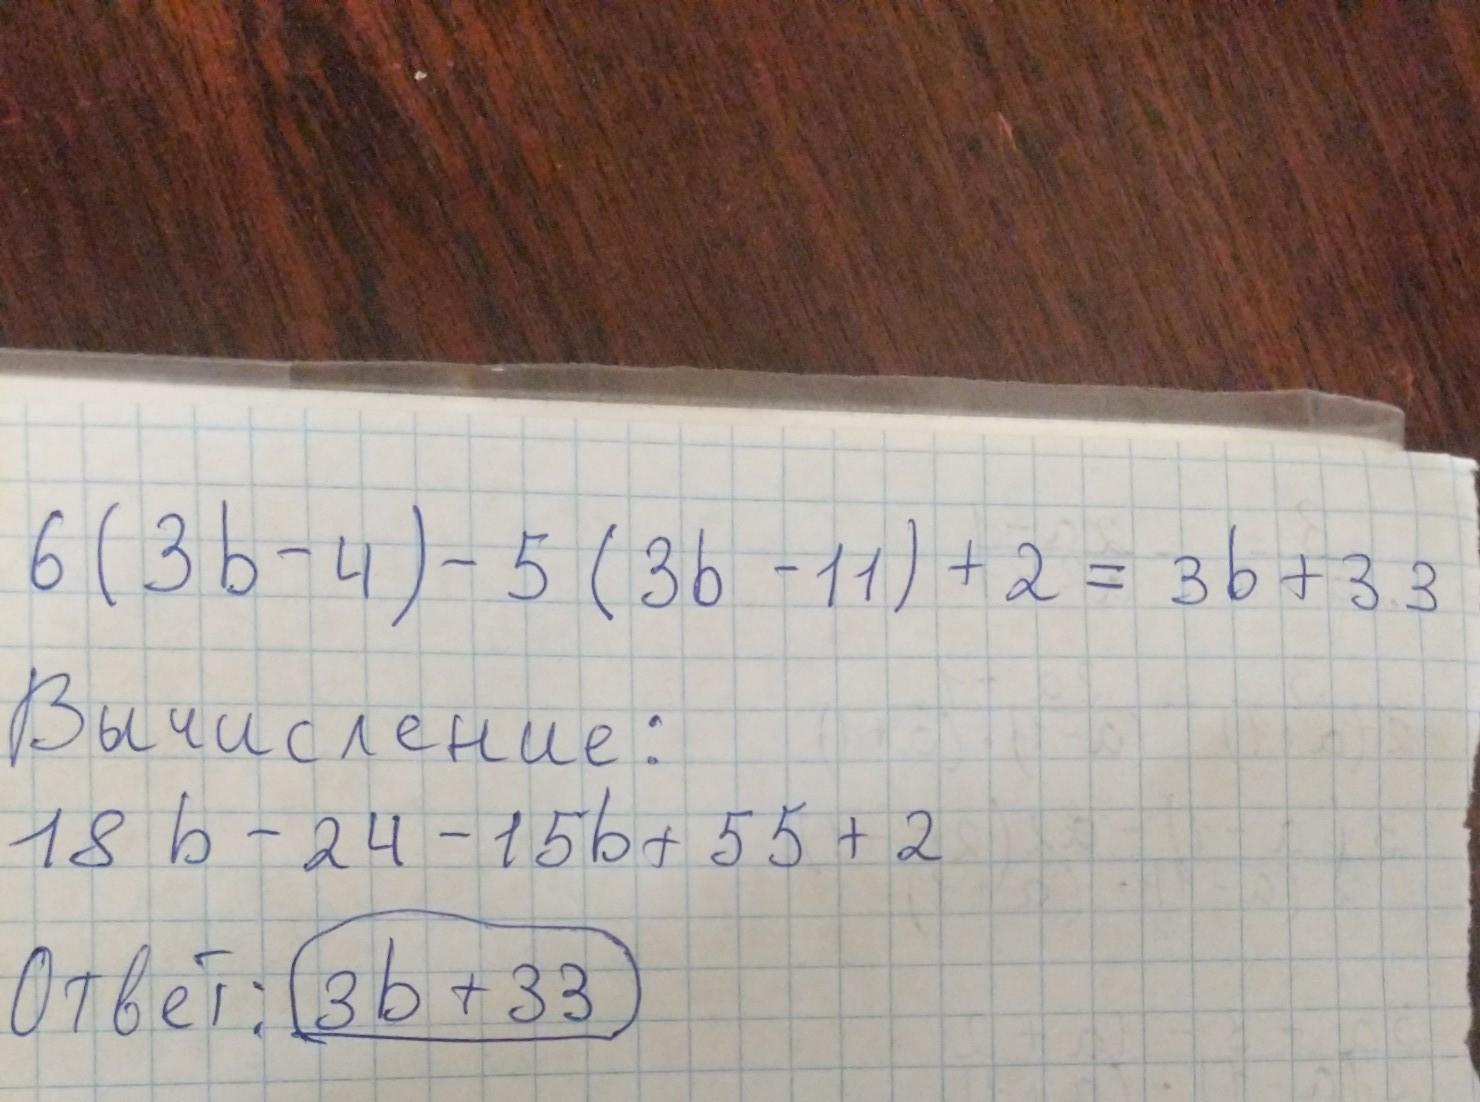 6(3b-4)-5(3b-11)+2=3b+33
Вычисление:
18b-24-15b+55+2
Ответ: 3b+33